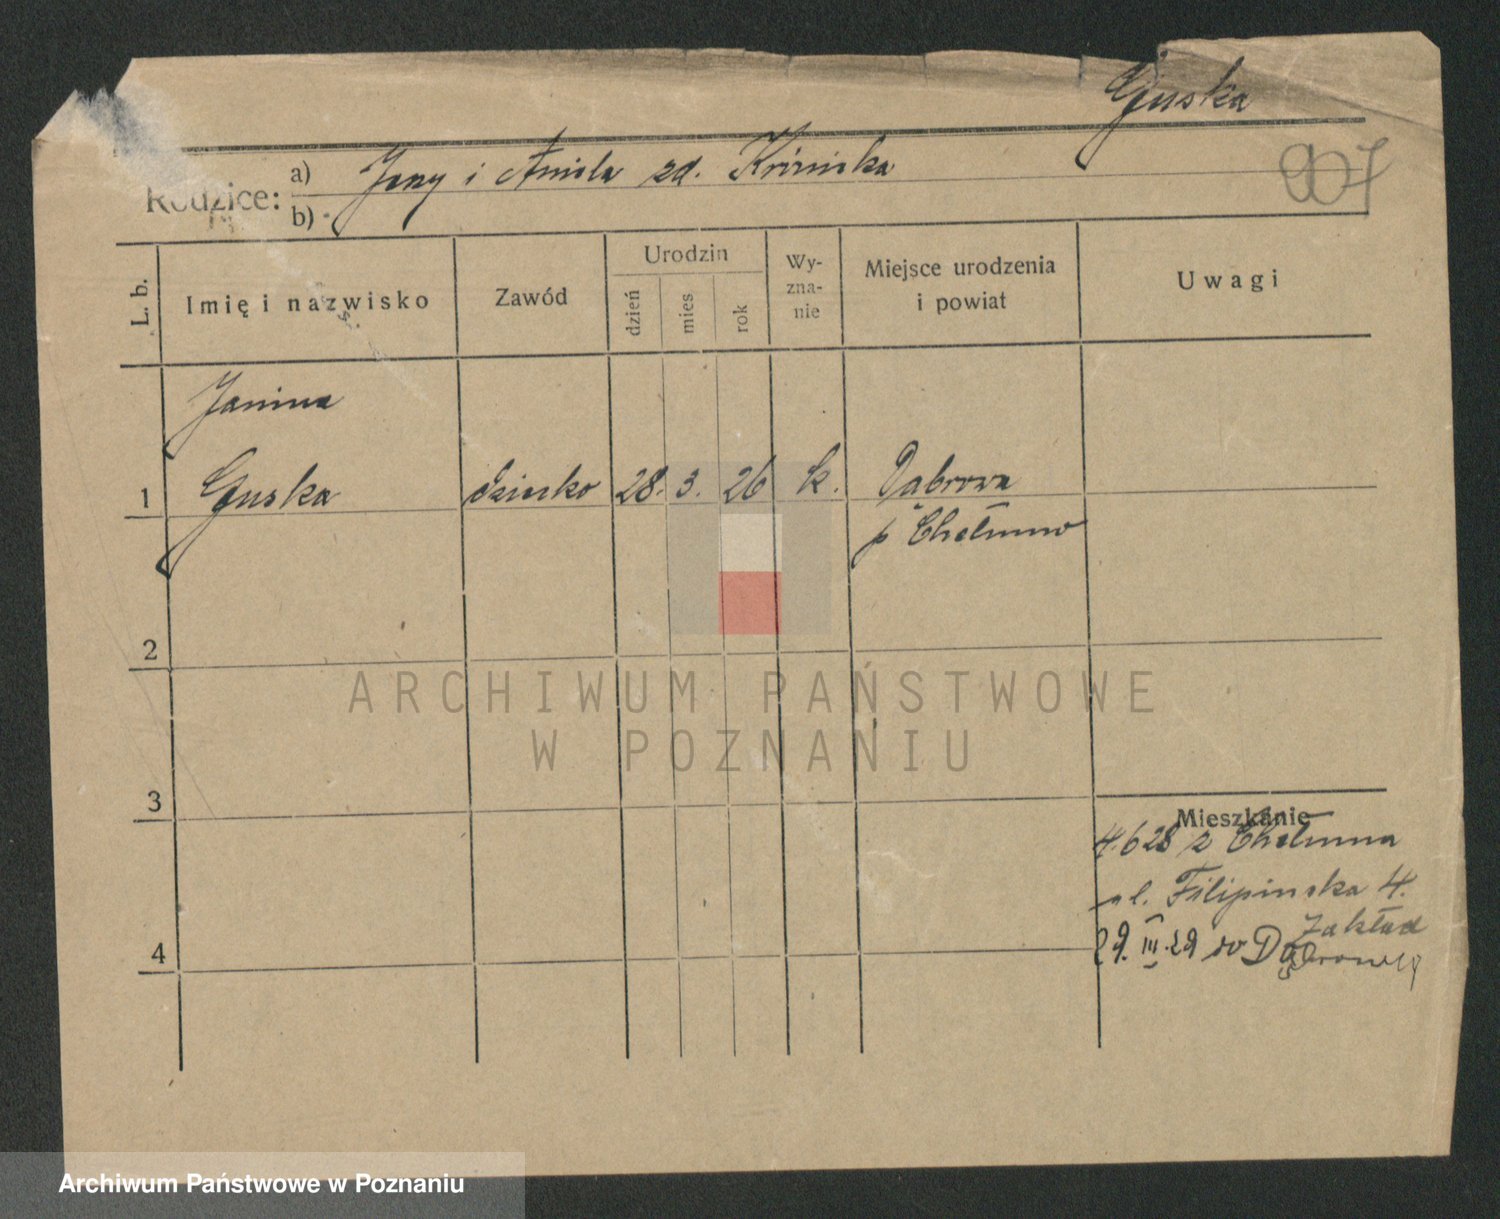 Guska
907
Rodzice: a) Jerzy i Aniela zd.
b)
L. b.
Imię i nazwisko
Zawód
Urodzin
dzień
mies
rok
Wy-
zna-
nie
Miejsce urodzenia
i powiat
Uwagi
Janina
1 Guska dziecko 28. 3. 26 k. Dąbrowa
p Chełmno
2
3
4
Mieszkanie
4.6 28 z Chełmna
ul. Filipinska 4.
Zakład
29. III. 29 do Dąbrowy
ARCHIWUM PAŃSTWOWE
W POZNANIU
Archiwum Państwowe w Poznaniu